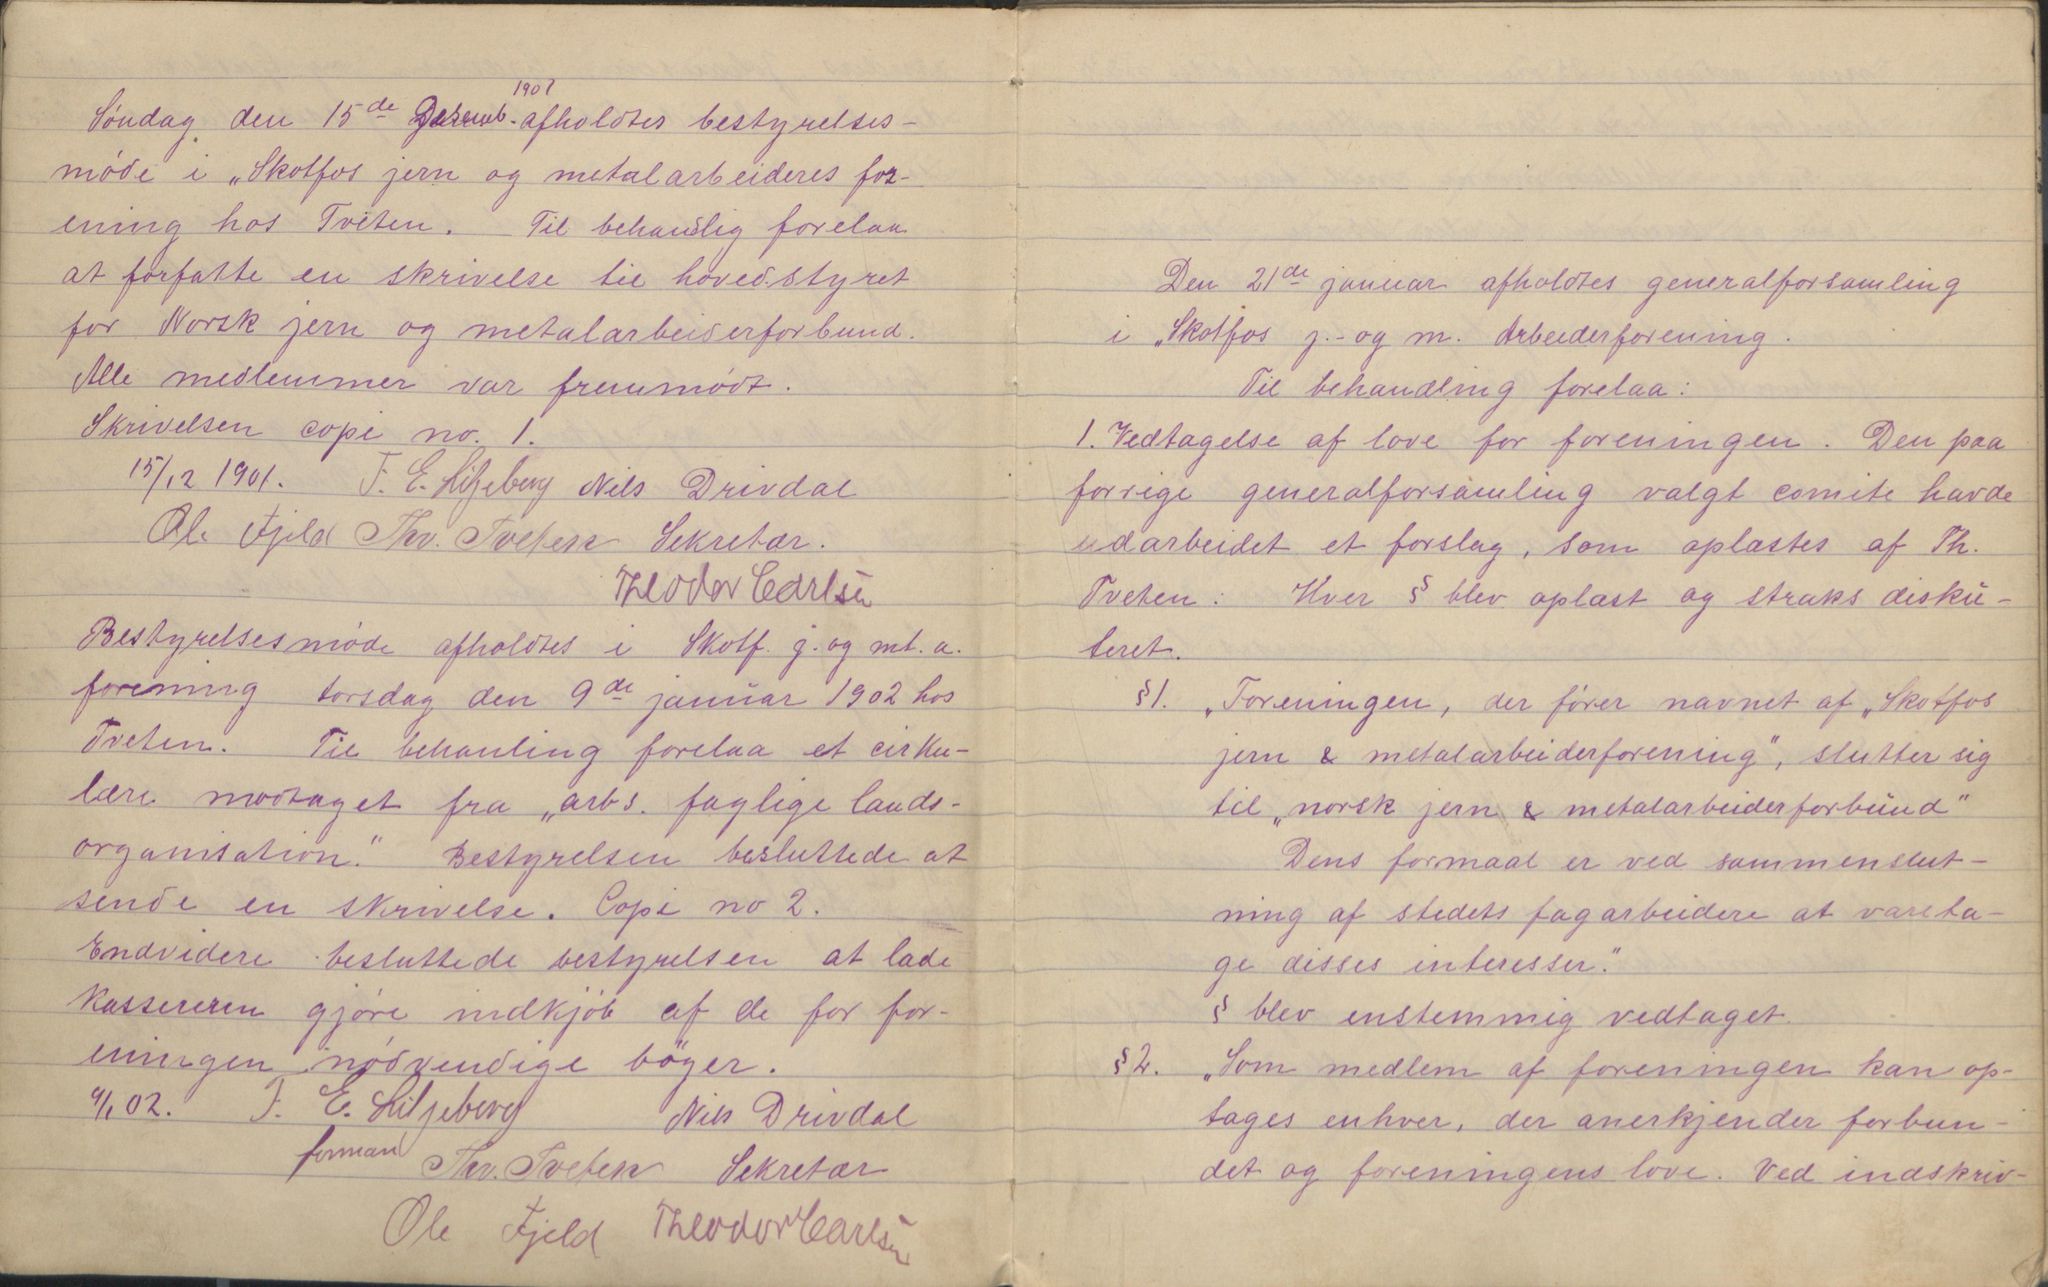 1901
Søndag den 15de Desemb. afholdtes bestyrelses-
møde i „Skotfos jern og metalarbeideres for-
ening hos Tveten. Til behandlig forelaa
at forfatte en skrivelse til hovedstyret
for Norsk jern og metalarbeiderforbund.
Alle medlemmer var fremmødt.
Skrivelsen copi no. 1.
15/12 1901. F. E. Liljeberg Nils Drivdal
Ole Fjeld Thv. Tveten Sekretær.
Theodor Carlsen
Bestyrelsesmøde afholdtes i Skotf. j. og mt. a.
forening torsdag den 9de januar 1902 hos
Tveten. Til behanling forelaa et cirku-
lære modtaget fra „arbs. faglige lands-
organisation." Bestyrelsen besluttede at
sende en skrivelse. Copi no 2.
Endvidere besluttede bestyrelsen at lade
kassereren gjøre indkjøb af de for for-
eningen nødvendige bøger.
9/1 02. F. E. Liljeberg Nils Drivdal
forman Thv. Tveten Sekretær
Ole Fjeld Theodor Carlsen
Den 21de januar afholdtes generalforsamling
i „Skotfos j.- og m. Arbeiderforening.
Til behandling forelaa:
1. Vedtagelse af love for foreningen. Den paa
forrige generalforsamling valgt comite havde
udarbeidet et forslag, som oplæstes af Th.
Tveten: Hver § blev oplæst og straks disku-
teret.
§1. „Foreningen, der fører navnet af „Skotfos
jern & metalarbeiderforening", slutter sig
til „norsk jern & metalarbeiderforbund"
Dens formaal er ved sammenslut-
ning af stedets fagarbeidere at vareta-
ge disses interesser."
§ blev enstemmig vedtaget.
§2. „Som medlem af foreningen kan op-
tages enhver, der anerkjender forbun-
det og foreningens love. Ved indskriv-